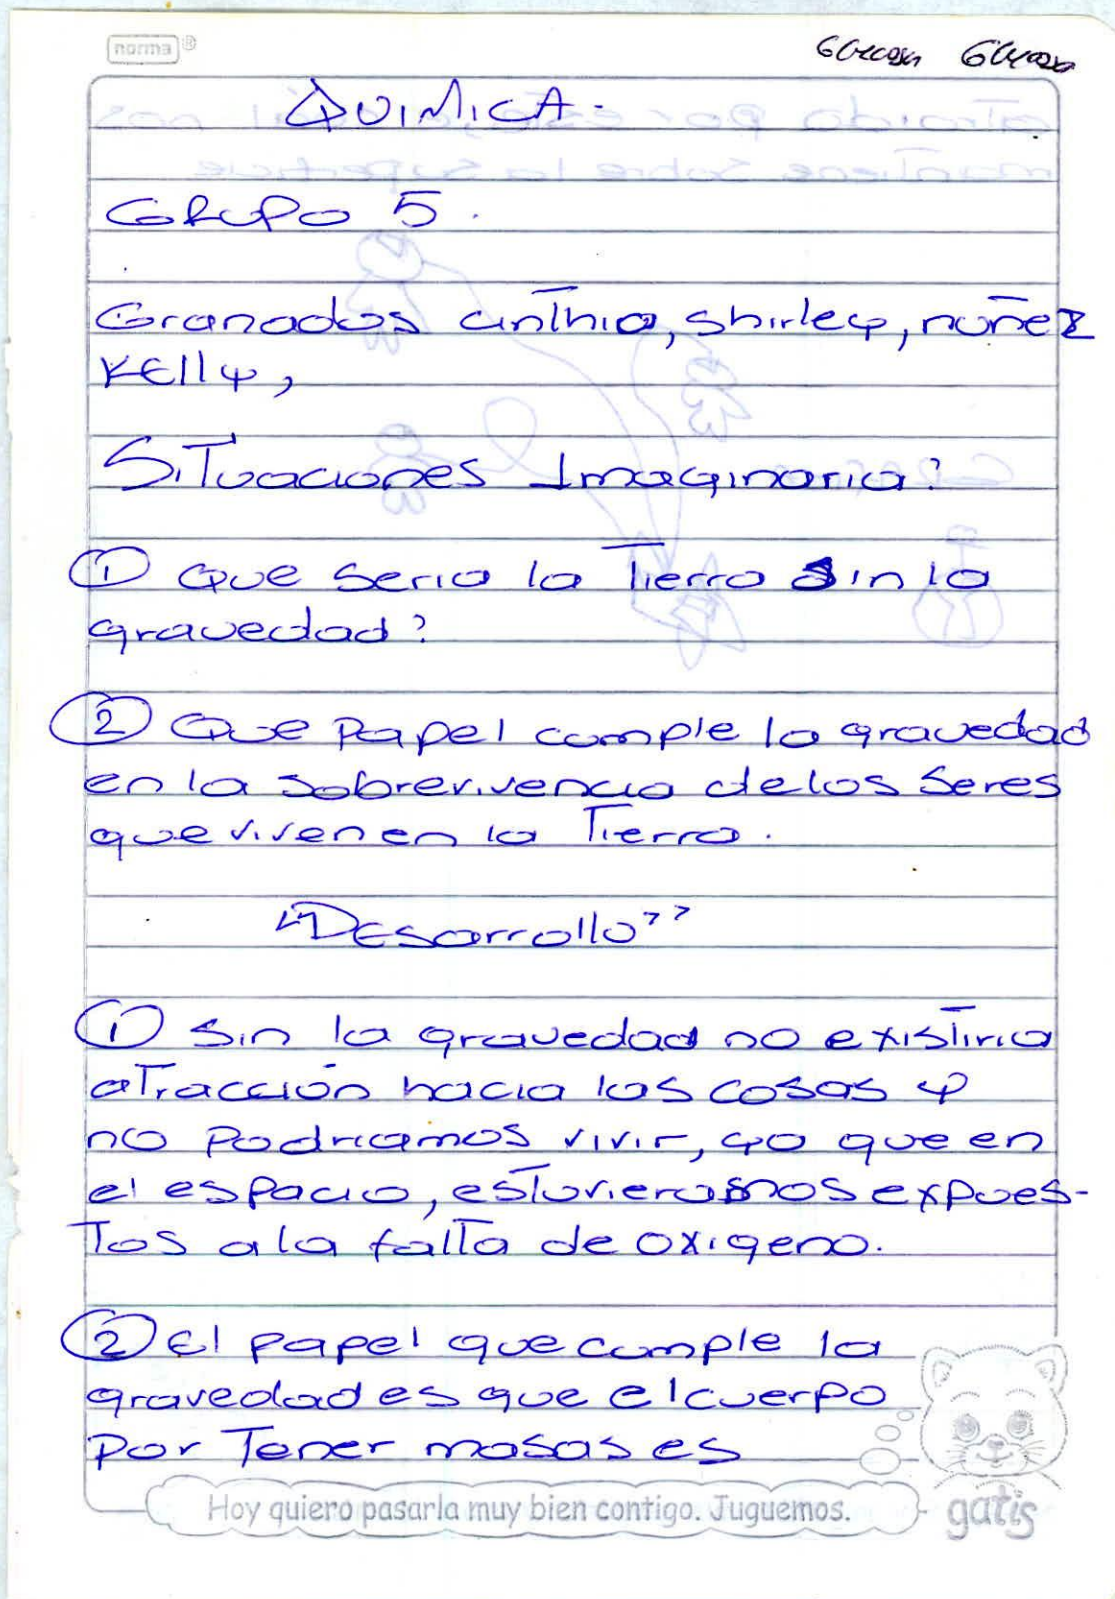 norma®
QUIMICA.
Grupo 5.
Granados cinthia, shirley, nuñez
Kelly,
Situaciones Imaginaria?
① Que seria la Tierra sin la
gravedad?
② Que Papel cumple la gravedad
en la sobrevivencia de los seres
que viven en la Tierra.
"Desarrollo"
① Sin la gravedad no existiria
atracción hacia las cosas y
no Podriamos vivir, ya que en
el espacio, estuvieramos expues-
tos a la falta de oxigeno.
② El papel que cumple la
gravedad es que el cuerpo
por Tener masas es
Hoy quiero pasarla muy bien contigo. Juguemos.
gatis